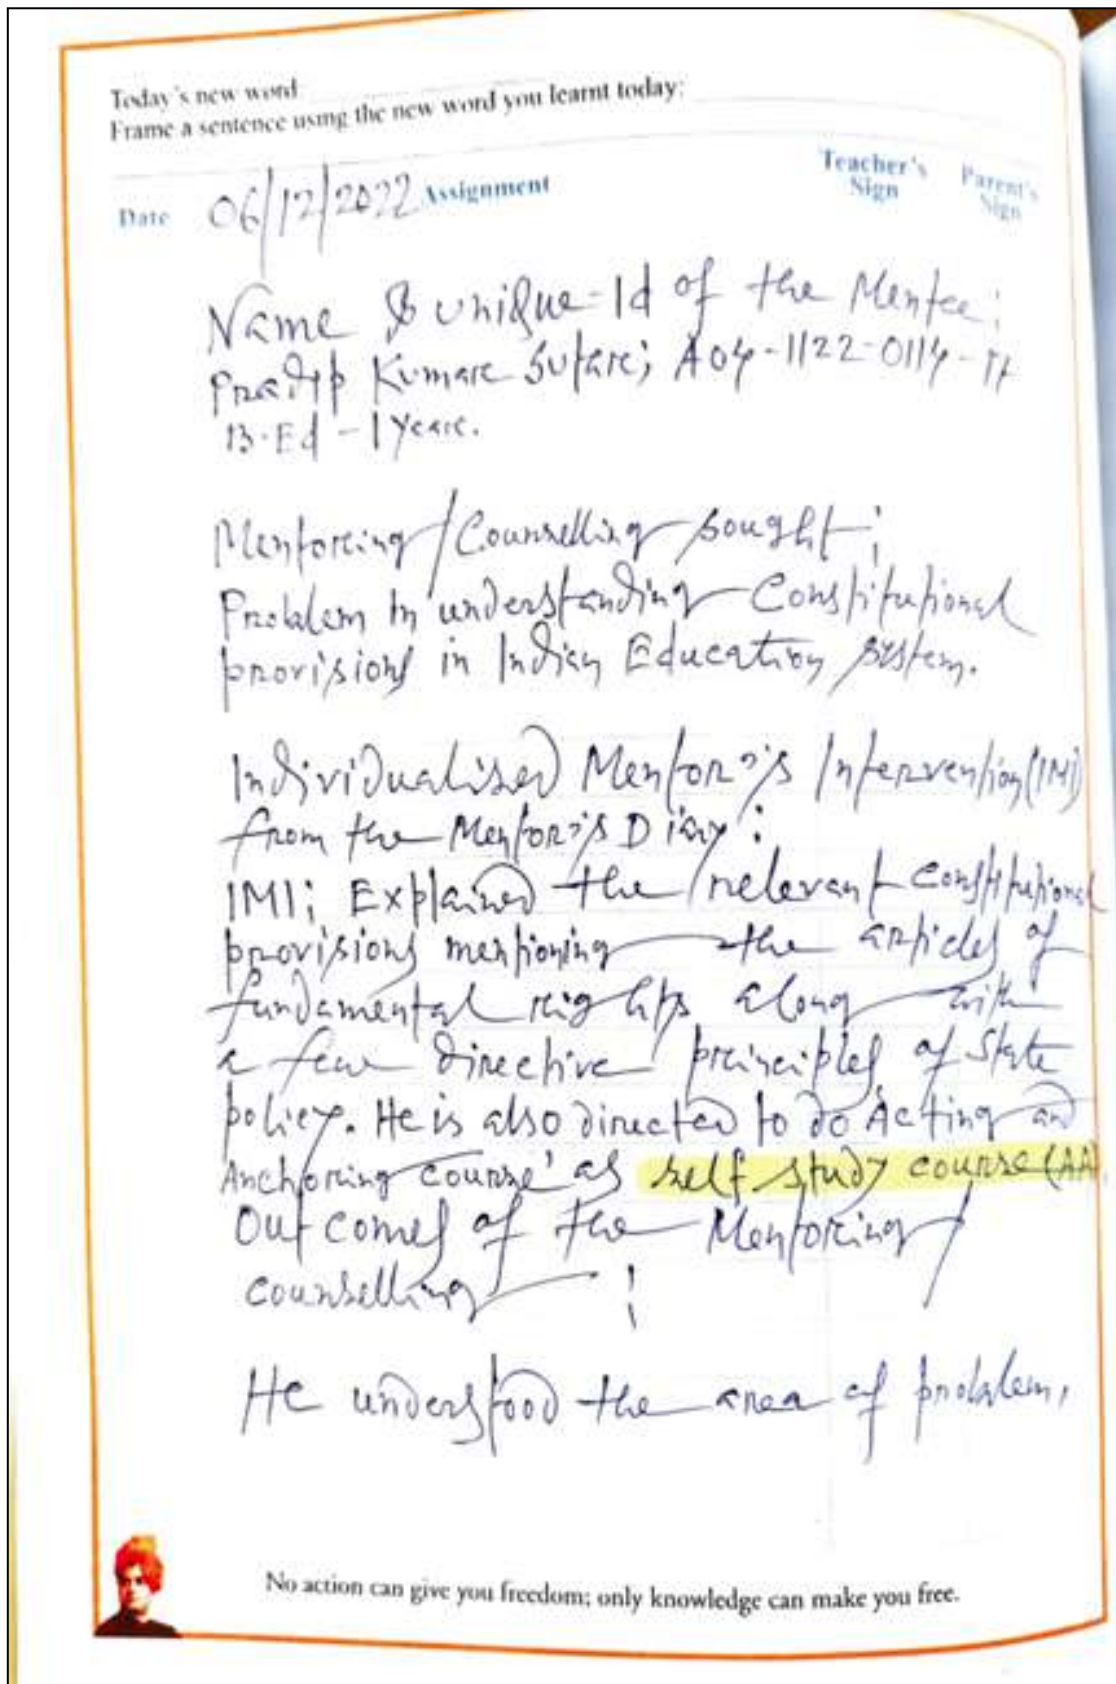 Today's new word
Frame a sentence using the new word you learnt today:
Teacher's Sign
Parent's Sign
Date 06/12/2022 Assignment
Name & unique-Id of the Mentee;
Pradip Kumare Sutare; A04-1122-0114-
B.Ed - 1 Yeare.
Mentoreing/Counselling sought;
Problem in understanding Constitutional
provisions in Indian Education system.
Individualised Mentor's Intervention (IMI)
from the Mentor's Diary:
IMI; Explained the relevant Constitutional
provisions mentioning the articles of
fundamental reights along with
a few directive preinciples of State
policy. He is also directed to do Acting and
Anchoring course' as self study course (AA)
Outcomes of the Mentoreing/
counselling;
He understood the area of problem,
No action can give you freedom; only knowledge can make you free.